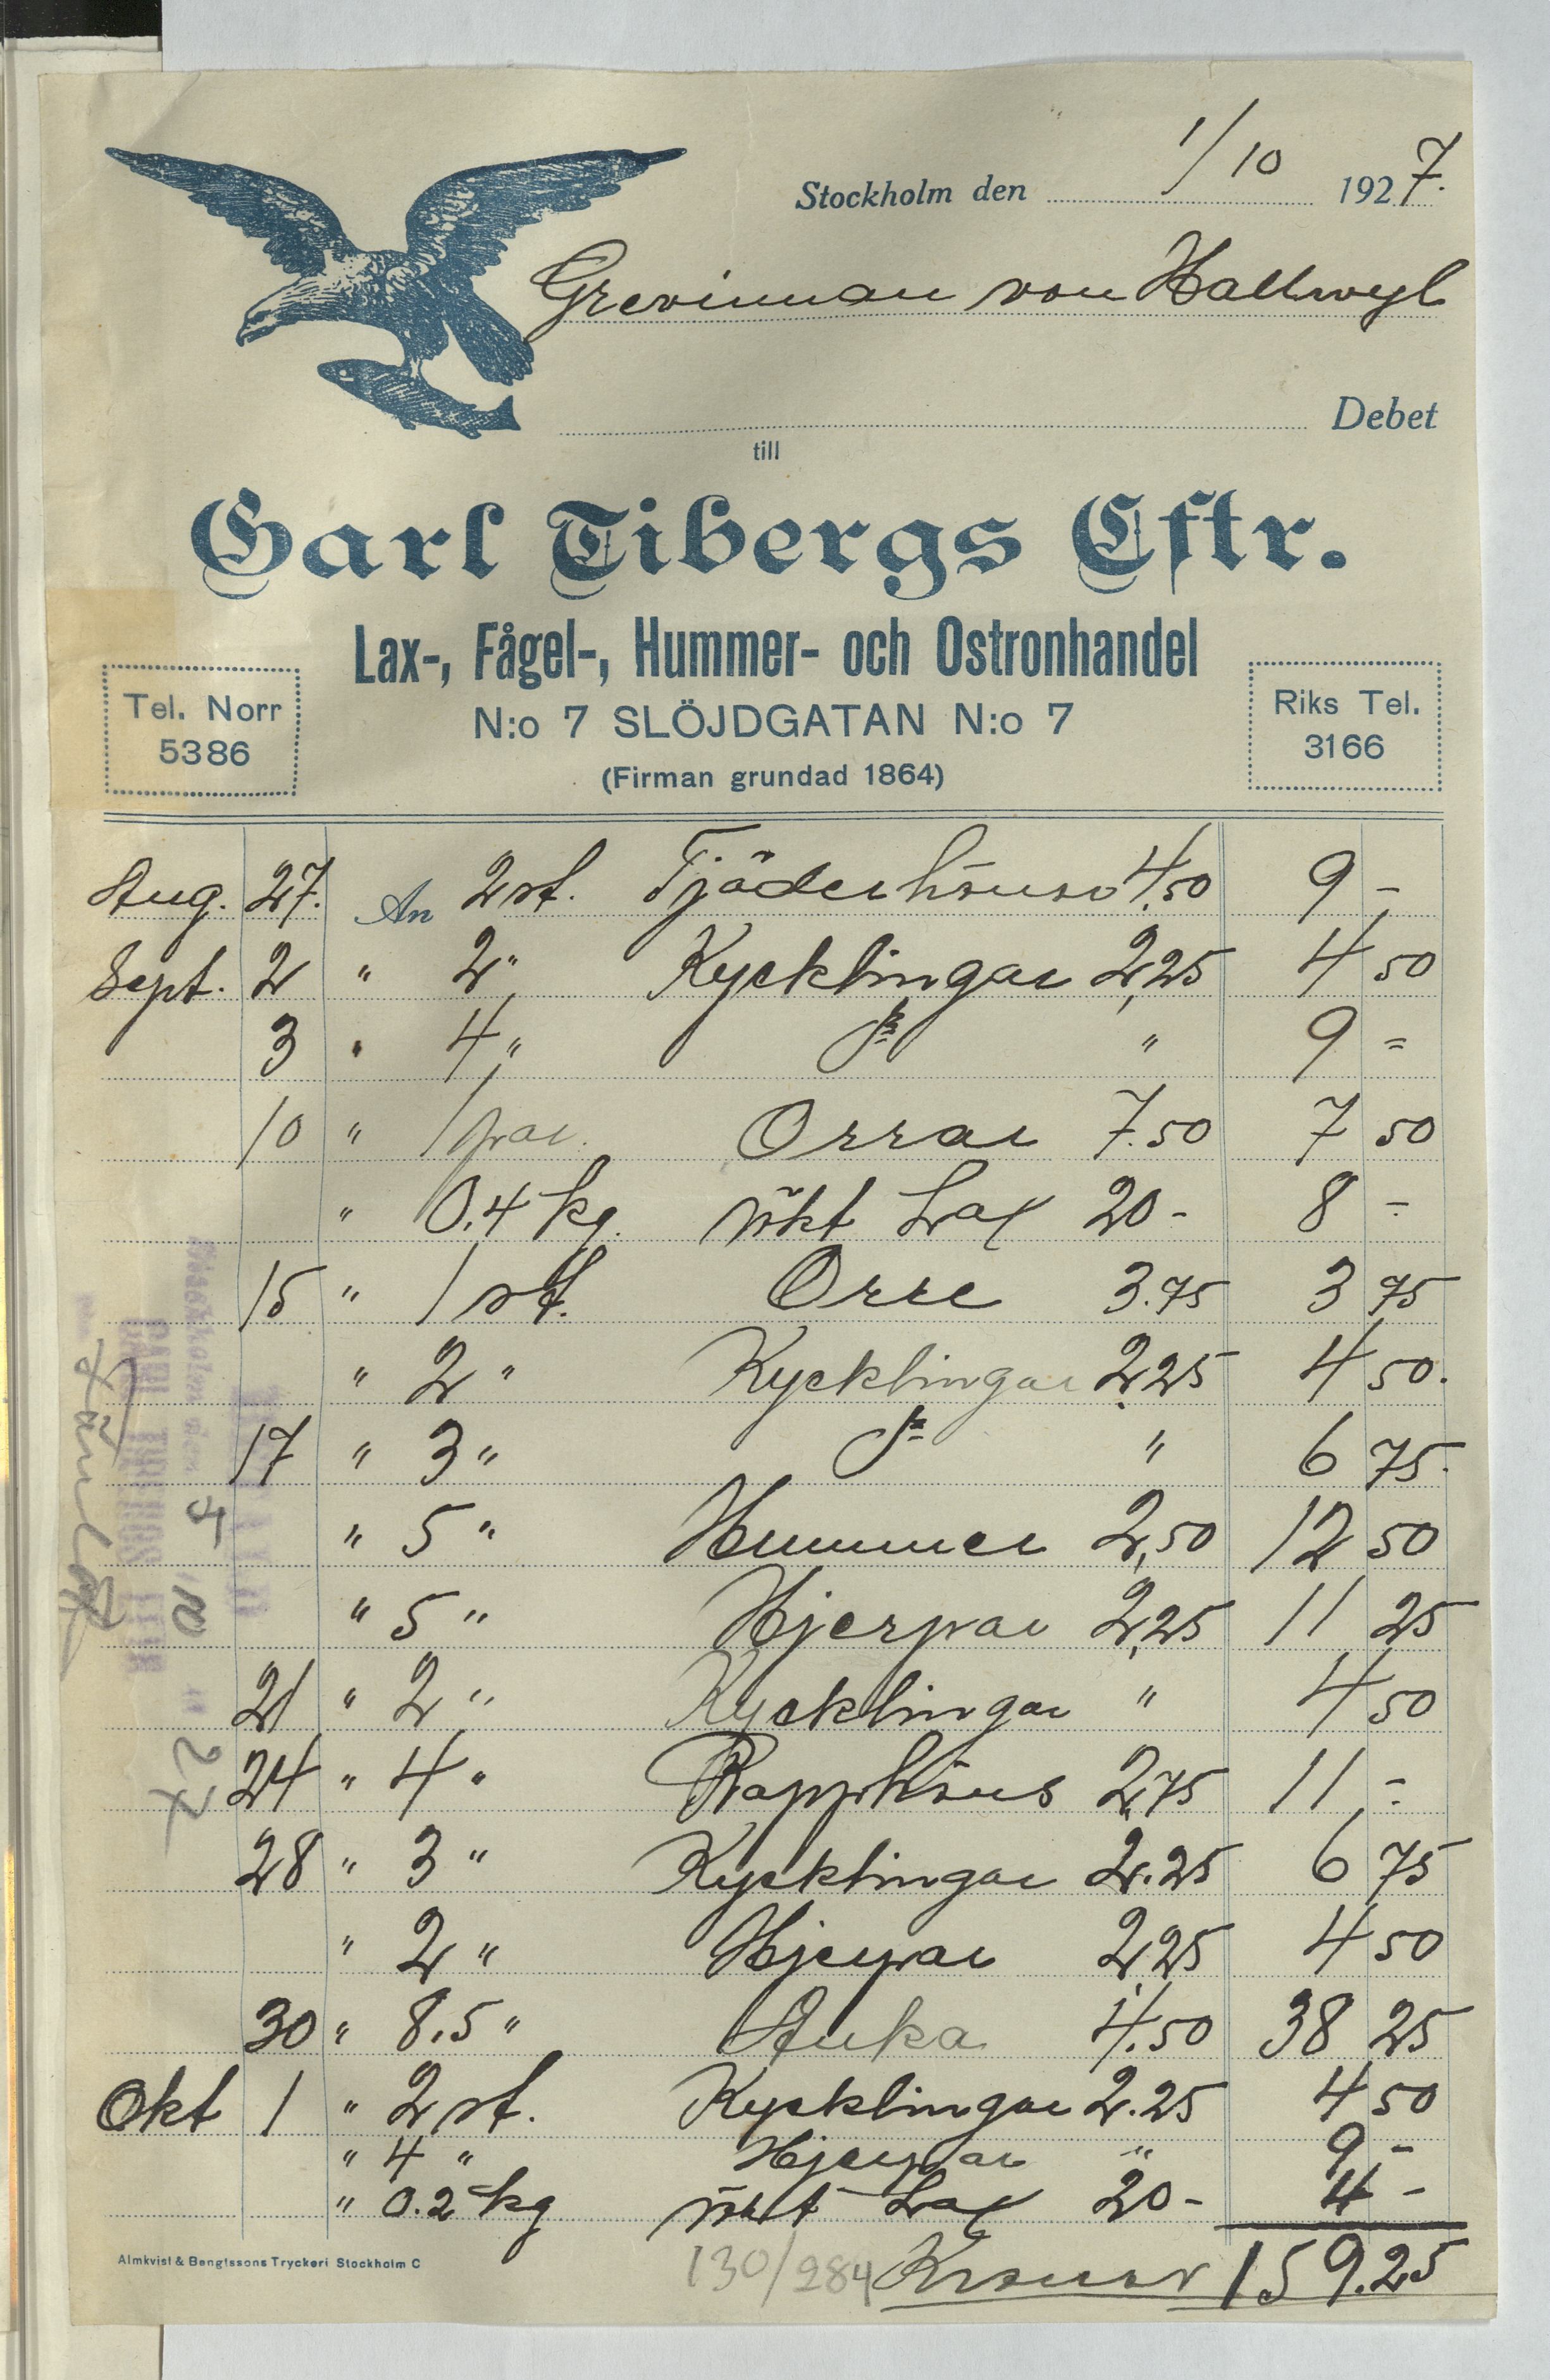 Stockholm den 1/10 1927.
Grevinnan von Hallwyl
Debet
till
Carl Tibergs Eftr.
Lax-, Fågel-, Hummer- och Ostronhandel
N:o 7 SLÖJDGATAN N:o 7
(Firman grundad 1864)
Tel. Norr
5386
Riks Tel.
3166
Aug. 27. An 2 st. Tjäderhönso 4,50 9 -
Sept. 2 " 2 " Kycklingar 2,25 4 50
3 " 4 " " 9 =
10 " 1 par. Orrar 7.50 7 50
" 0.4 kg. rökt Lax 20 - 8 -
15 " 1 st. Orre 3.75 3 75
" 2 " Kycklingar 2,25 4 50.
17 " 3 " " 6 75.
" 5 " Hummer 2,50 12 50
" 5 " Hjerpar 2,25 11 25
21 " 2 " Kycklingar " 4 50
24 " 4 " Rapphöns 2,75 11 -
28 " 3 " Kycklingar 2.25 6 75
" 2 " Hjerpar 2,25 4 50
30 " 8.5 " Anka 4.50 38 25
Okt 1 " 2 st. Kycklingar 2.25 4 50
" 4 " Hjerpar " 9 -
" 0.2 kg rökt Lax 20 - 4 -
130/284 Kronor 159.25
Almkvist & Bengtssons Tryckeri Stockholm C
4 10 27